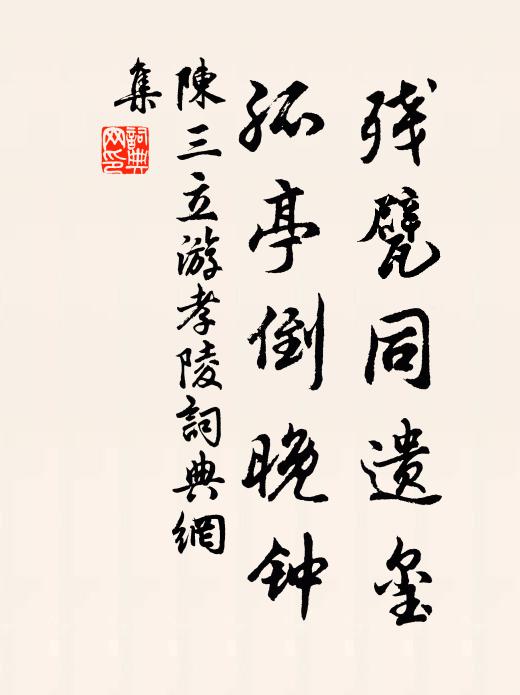 残甓同遗玺
孤亭倒晚钟
陳三立游孝陵詞典網
集
詞典网印